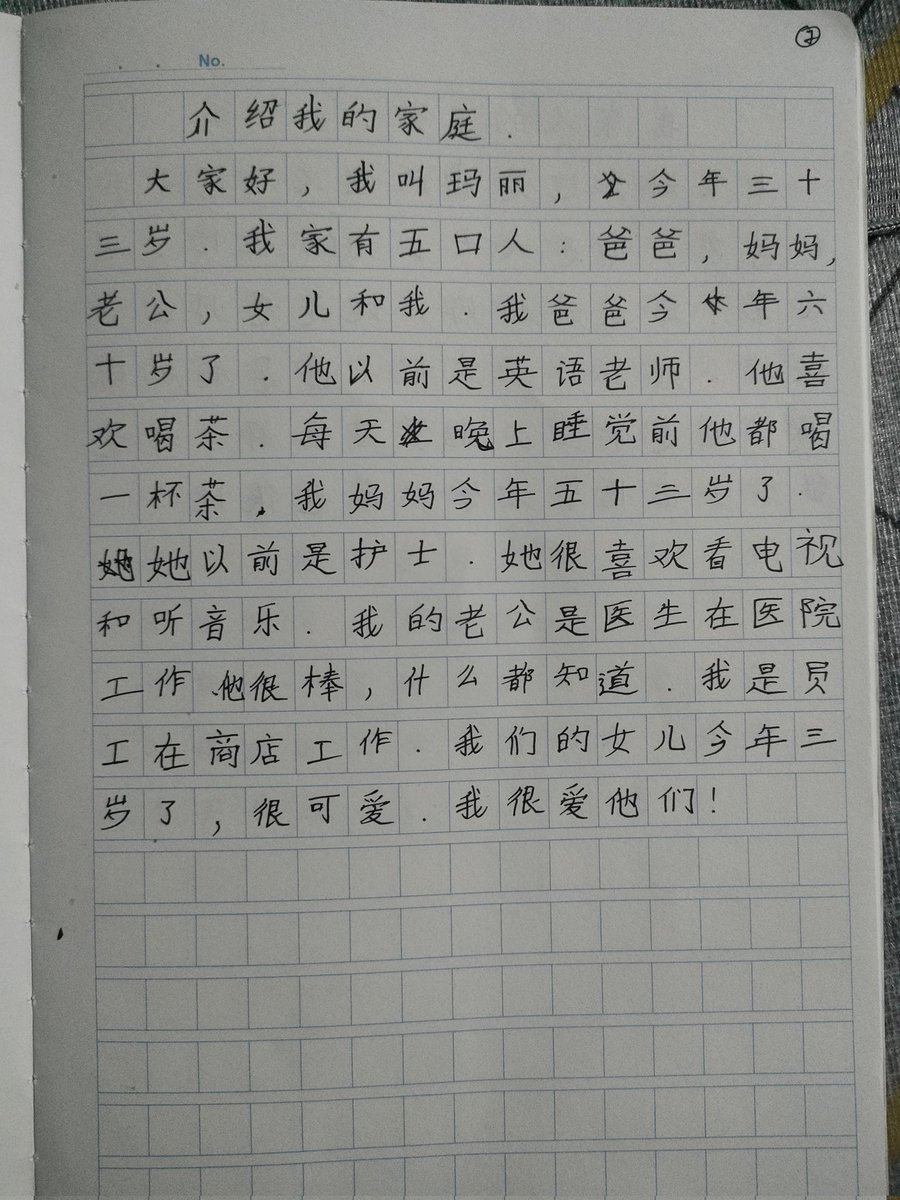 ②
No.
介绍我的家庭.
大家好，我叫玛丽，今年三十
三岁.我家有五口人：爸爸，妈妈，
老公，女儿和我.我爸爸今年六
十岁了.他以前是英语老师.他喜
欢喝茶.每天晚上睡觉前他都喝
一杯茶.我妈妈今年五十三岁了.
她以前是护士.她很喜欢看电视
和听音乐.我的老公是医生在医院
工作.他很棒，什么都知道.我是员
工在商店工作.我们的女儿今年三
岁了，很可爱.我很爱他们！